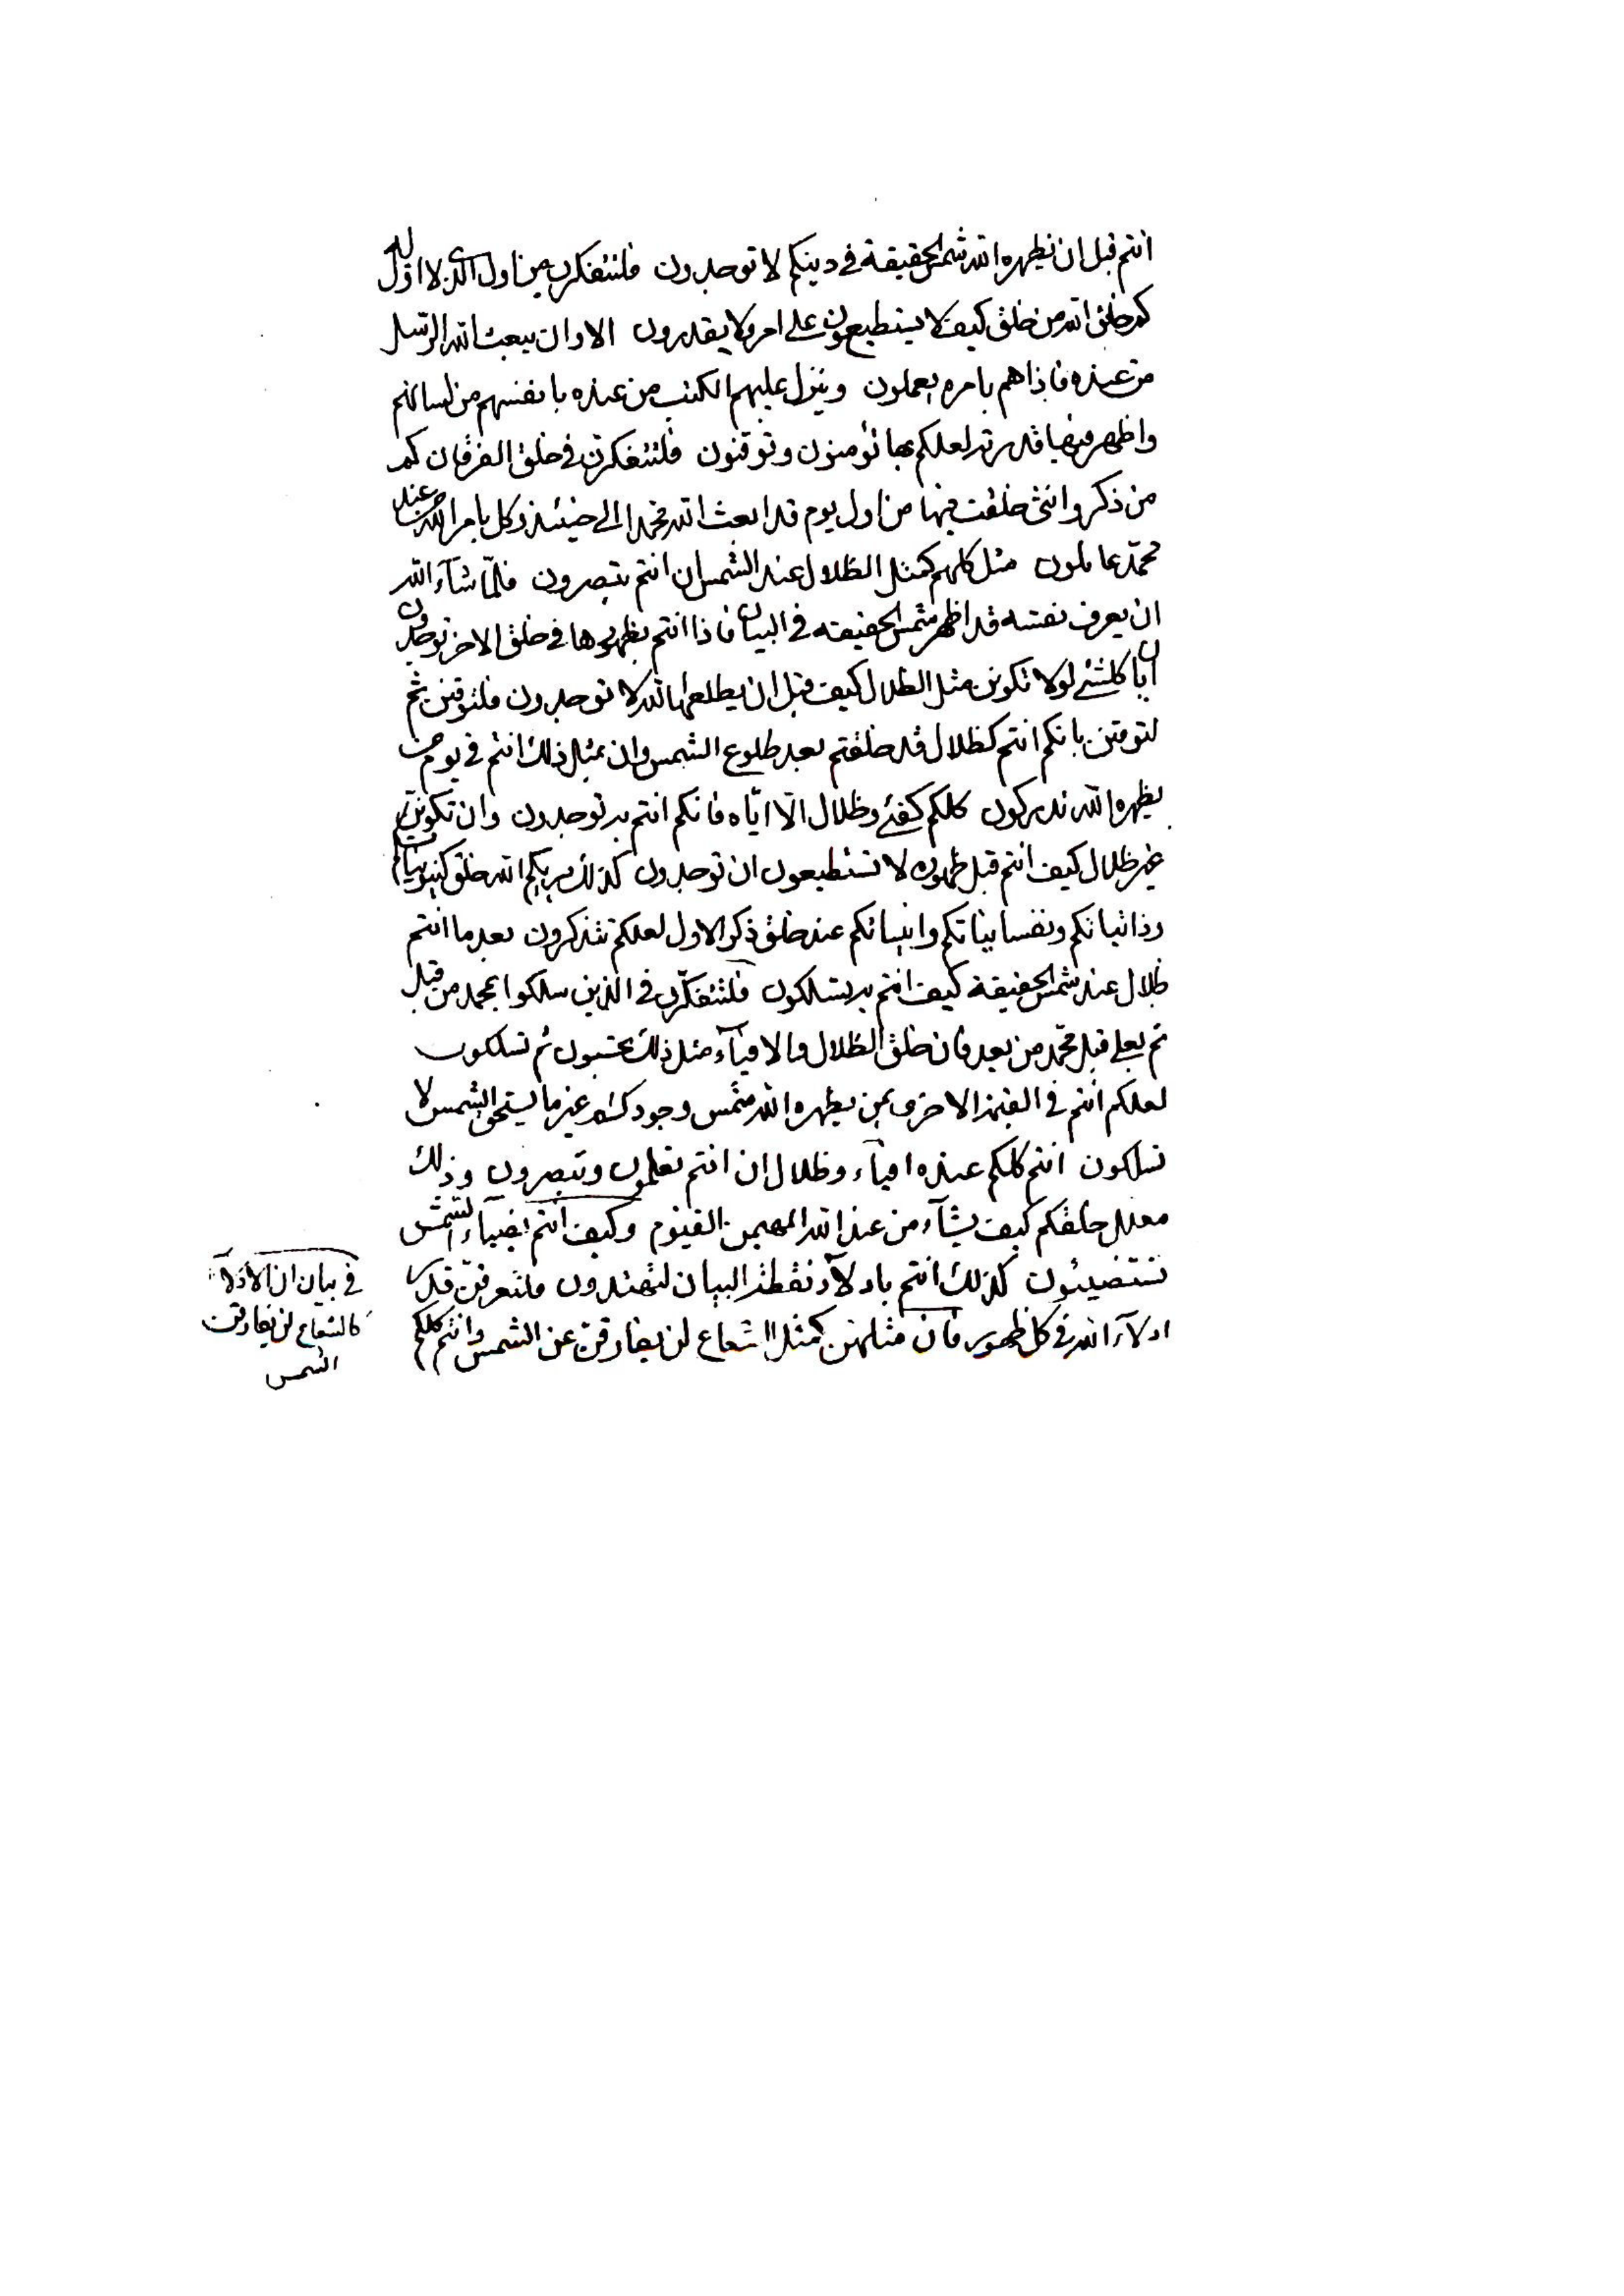 انتم قبل ان يظهره الله شمس الحقيقة في دينكم لا توجدون فلتتفكرن من اول الذي لا اول له
كم خلق الله من خلق كيف لا يستطيعون على امر ولا يقدرون الا وان يبعث الله الرسل
من عنده فاذا هم بامره يعملون وينزل عليهم الكتب من عنده بانفسهم من لسانهم
واظهر فيها قدرته لعلكم بها تؤمنون وتوقنون فلتتفكرن في خلق الفرقان كم
من ذكر وانثى خلقت فيها من اول يوم قد ابعث الله محمدا الى حينئذ وكل بامر الله من عند
محمد عاملون مثل كلهم كمثل الظلال عند الشمس ان انتم تبصرون فلما شآء الله
ان يعرف نفسه قد اظهر شمس الحقيقة في البيان فاذا انتم بظهورها في خلق الاخر توجدون
ان يا كلشئ لولا تكونن مثل الظلال كيف قبل ان يطلعها الله لا توجدون فلتوقنن ثم
لتوقنن بانكم انتم كظلال قد خلقتم بعد طلوع الشمس وان بمثل ذلك انتم في يوم من
يظهره الله تدركون كلكم كفئ وظلال الا اياه فانكم انتم به توجدون وان تكونن
غير ظلال كيف انتم قبل ظهوره لا تستطيعون ان توجدون كذلك يريكم الله خلق كينونياتكم
وذاتياتكم ونفسانياتكم وانياتكم عند خلق ذكر الاول لعلكم تتذكرون بعد ما انتم
ظلال عند شمس الحقيقة كيف انتم به تسلكون فلتتفكرن في الذين سلكوا بمحمد من قبل
ثم بعلي قبل محمد من بعد فان خلق الظلال والافيآء مثل ذلك تحسبون ثم تسلكون
لعلكم انتم في القيمة الاخرى بمن يظهره الله شمس وجود كلشئ غير ما يستحق الشمس لا
تسلكون انتم كلكم عنده افيآء وظلال ان انتم تعلمون وتبصرون وذلك
معلل خلقكم كيف يشآء من عند الله المهيمن القيوم وكيف انتم بضيآء الشمس
تستضيئون كذلك انتم بادلآء نقطة البيان لتهتدون فلتعرفن قدر
ادلآء الله في كل ظهور فان مثلهن كمثل الشعاع لن يفارقن عن الشمس وانتم كلكم
في بيان ان الادلآء
كالشعاع لن يفارقن
الشمس